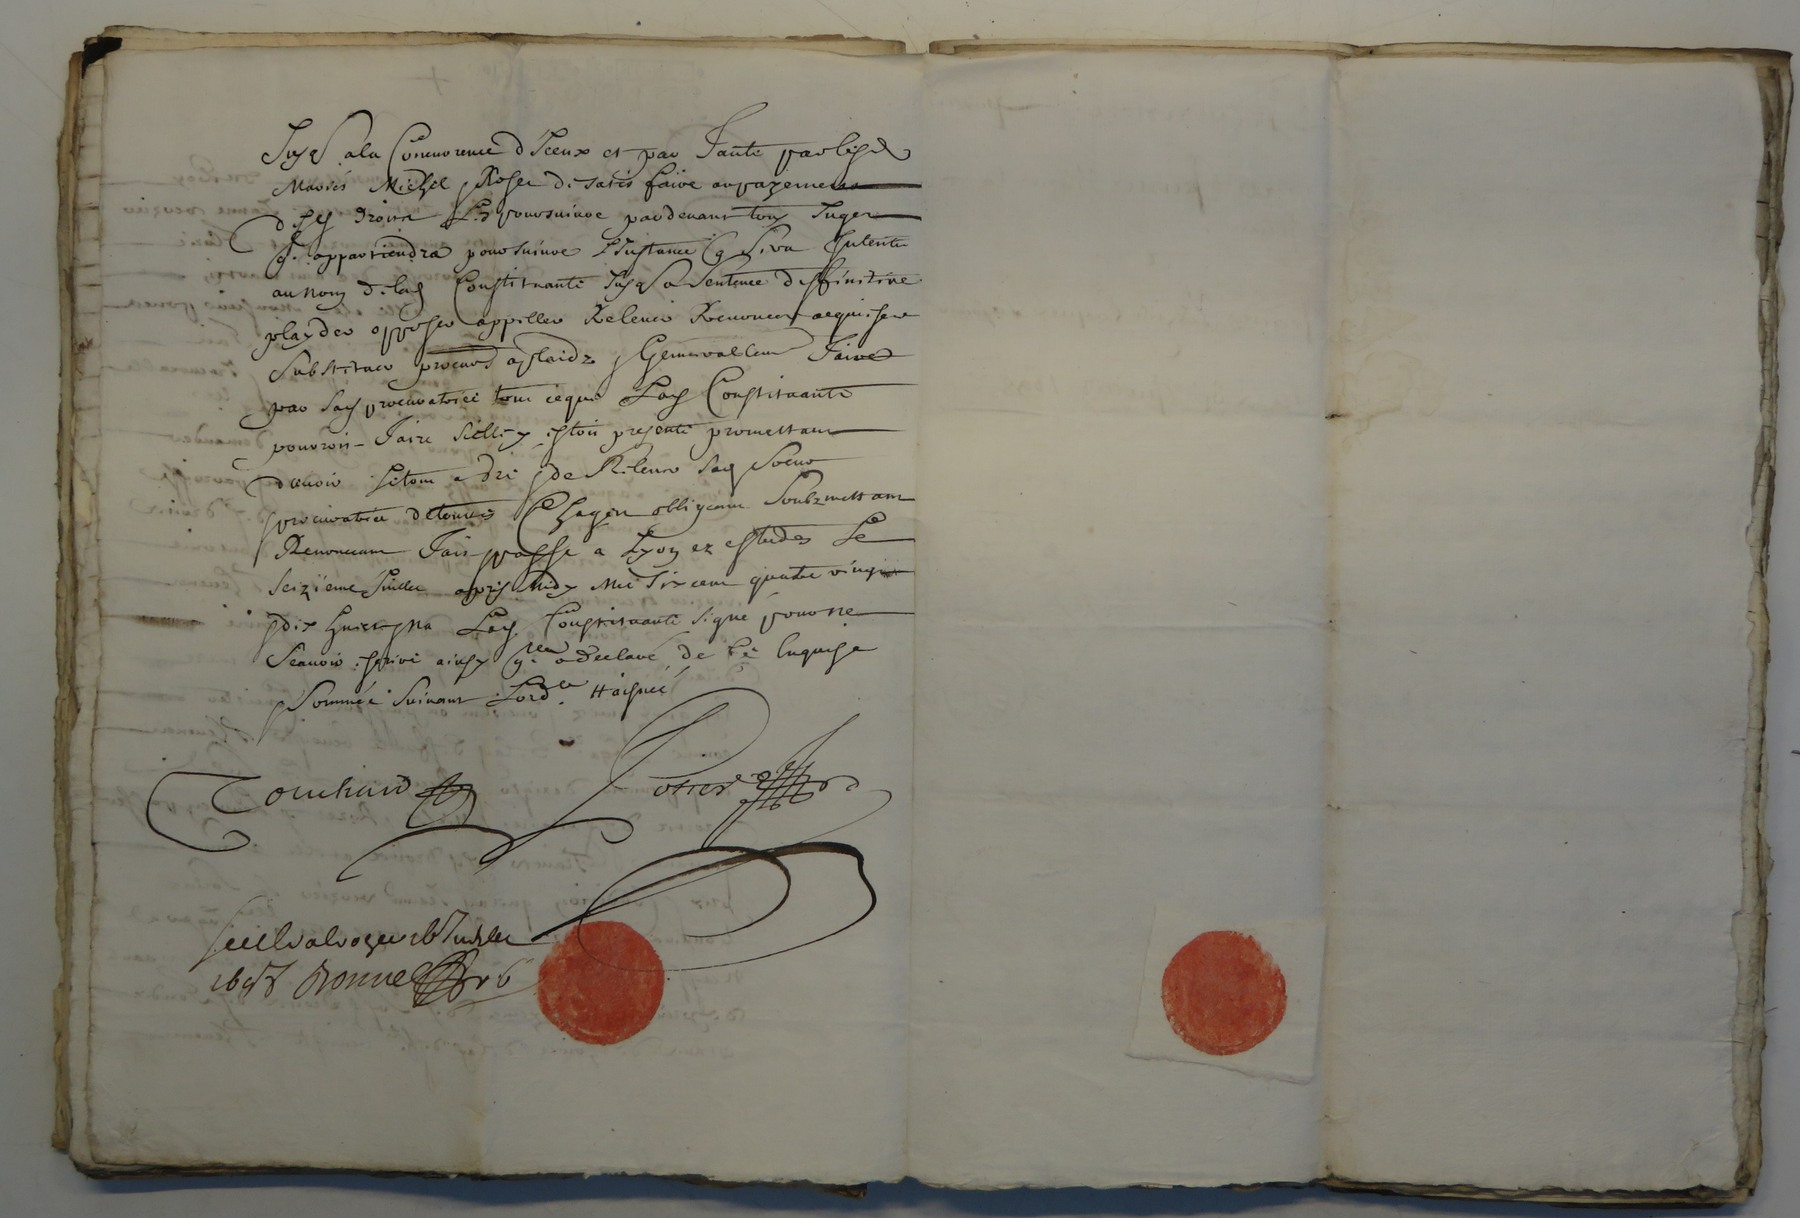 Jusqs a la Concurrence d'Iceux et par faute par lesd
Mariés Michel Roser de satisfaire au payement
desd droits Les poursuivre pardevant tous Juges
qil appartiendra poursuivre L'Instance qi sera Intentée
au nom de lad Constituante Jusqs a sentence deffinitive
playder opposer appeller Relever Renoncer acquiesser
Substituer procurs a plaidz Generallemt faire
par lad procuratrice tout ce que Lad Constituante
pouroit faire sielle y estoit presente promettant
d'avoir Le tout a gré de Relever lad Soeur
procuratrice de toutes Charges obligeant Soubzmettant
Renonceant fait passé a Lyon ez estudes Le
seizieme Juillet apres Midy Mil six cent quatre vingt
dix huict Na Lad Constituante signé pour ne
sçavoir escrire ainsy qelle a declaré de ce Enquise
Sommée Suivant Lordce
Touchard
Scellé a Lyon le 16 Juillet
1698